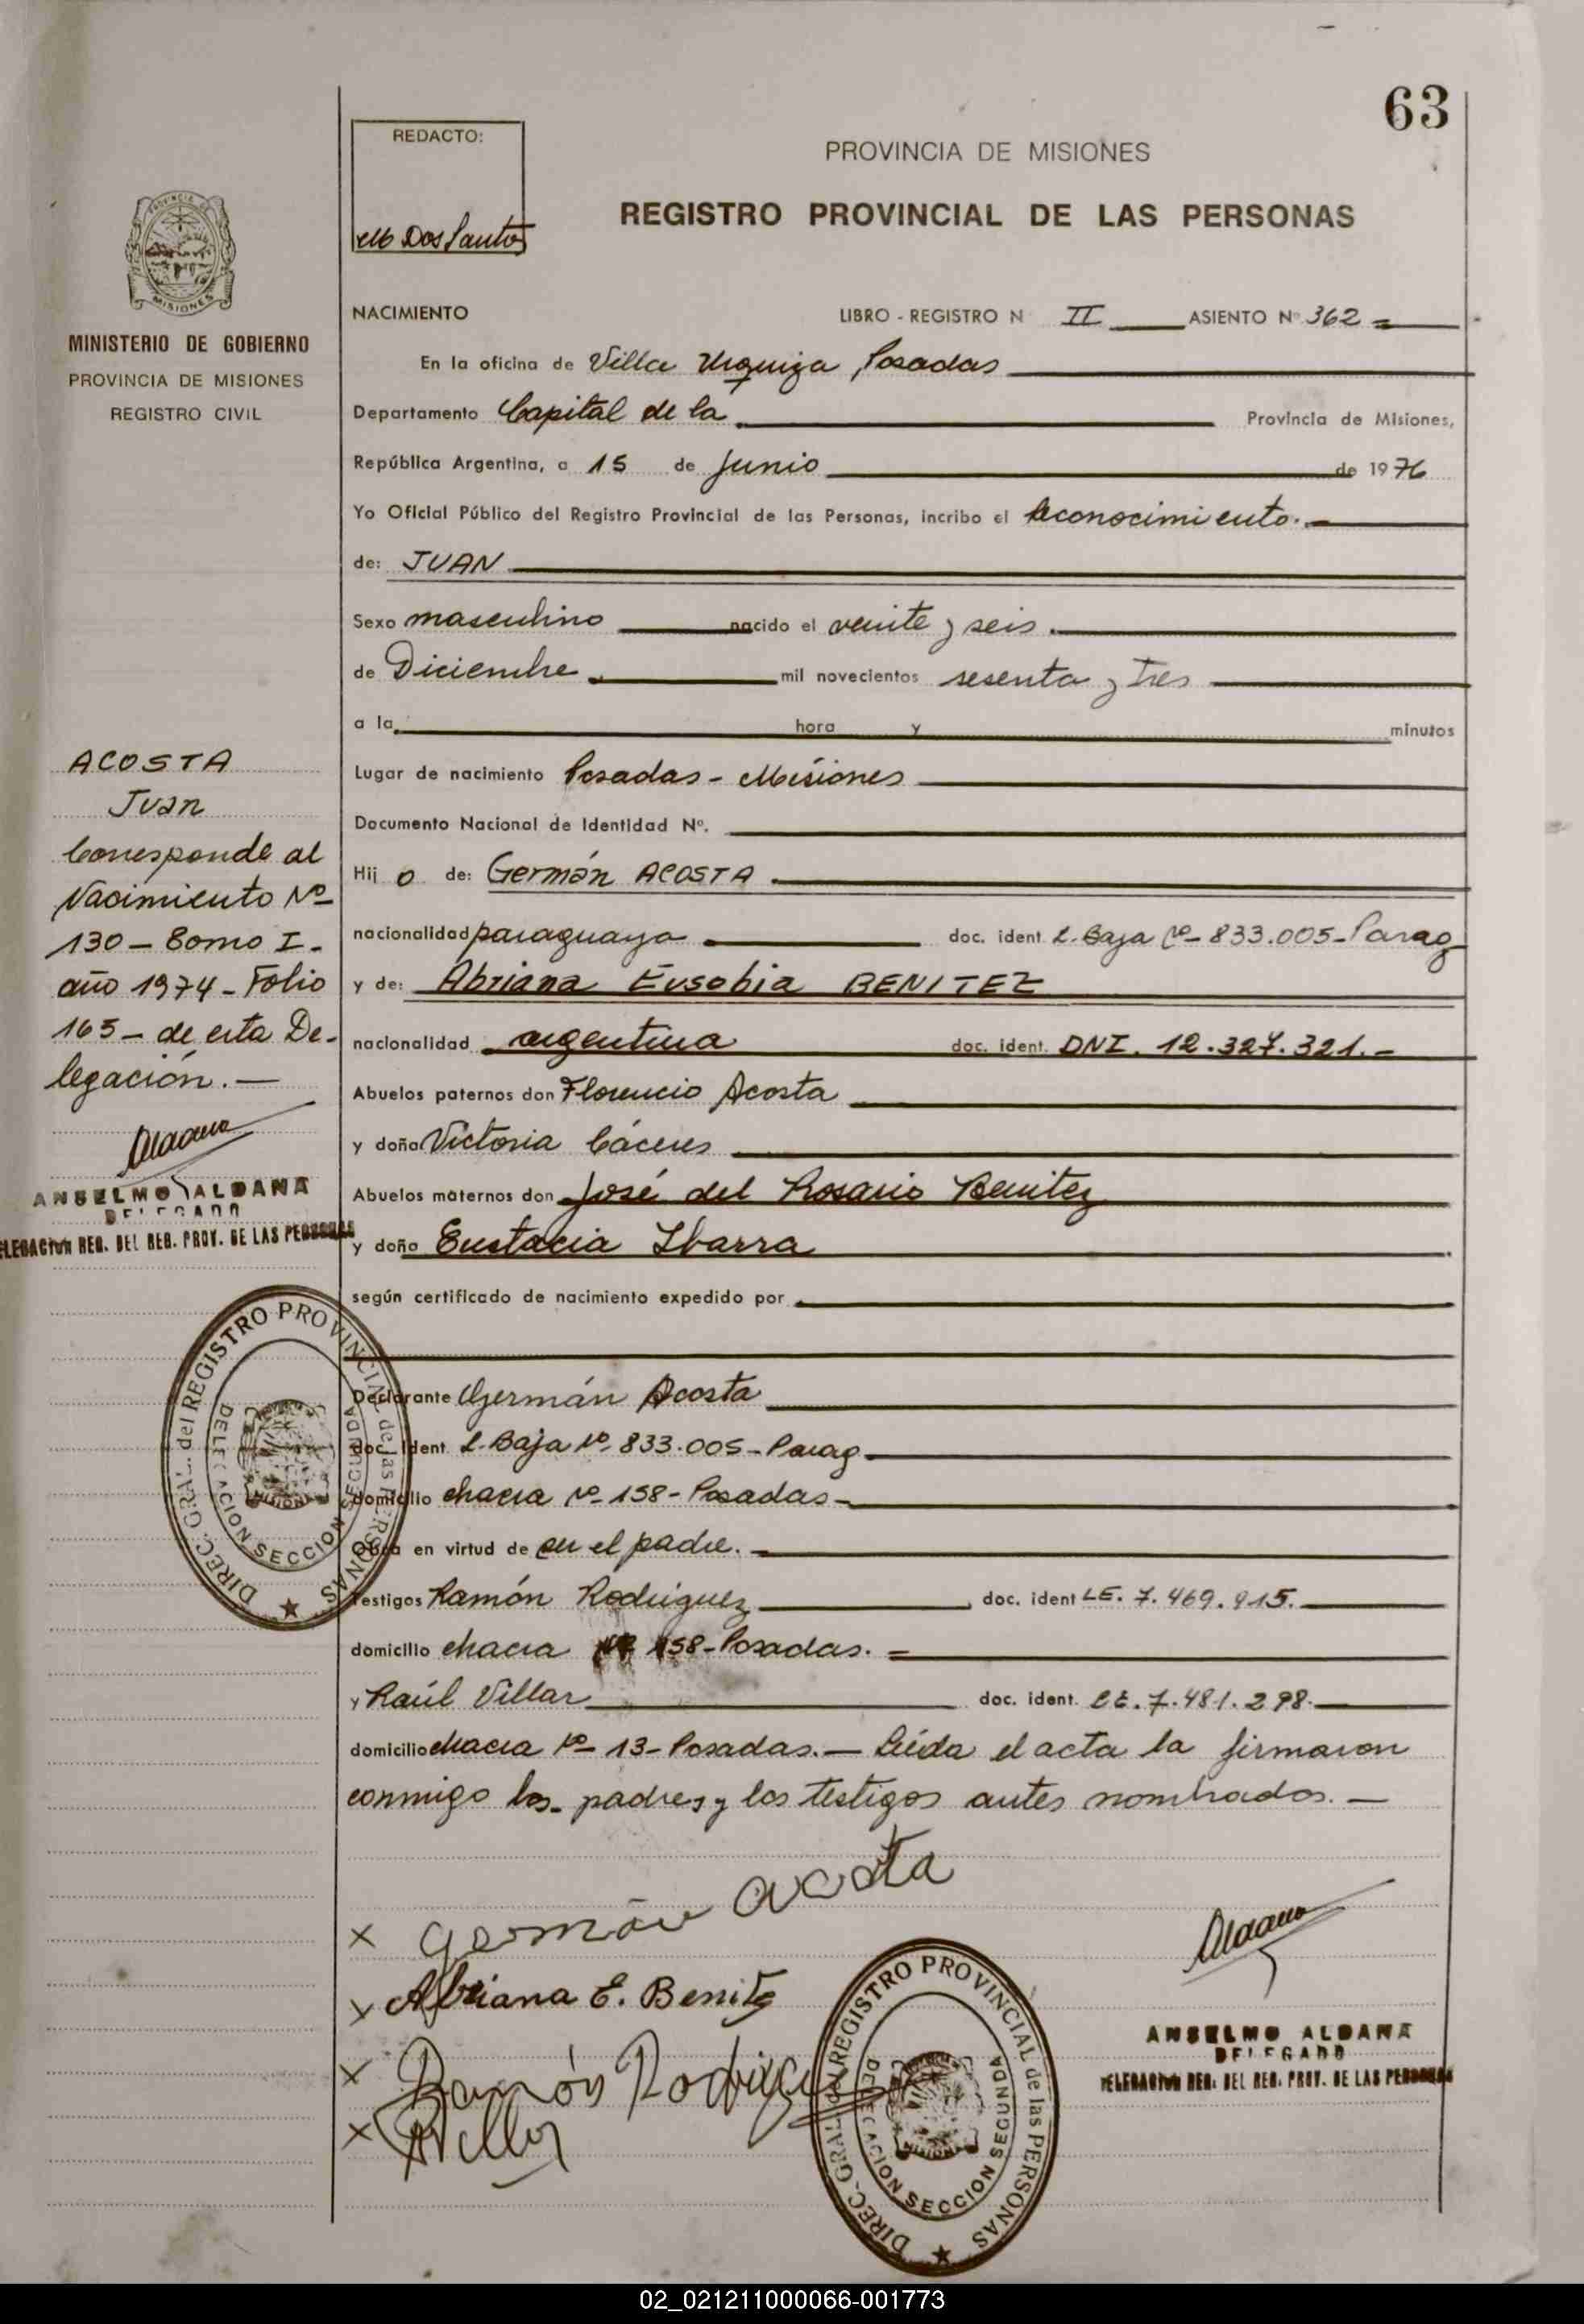 63
REDACTO:
PROVINCIA DE MISIONES
REGISTRO PROVINCIAL DE LAS PERSONAS
Dos Santos
MISIONES
MINISTERIO DE GOBIERNO
PROVINCIA DE MISIONES
REGISTRO CIVIL
NACIMIENTO LIBRO - REGISTRO N II ASIENTO Nº 362
En la oficina de Villa Urquiza, Posadas
Departamento Capital de la Provincia de Misiones,
República Argentina, a 15 de Junio de 1976
Yo Oficial Público del Registro Provincial de las Personas, incribo el Reconocimiento.
de: JUAN
Sexo masculino nacido el veinte y seis.
de Diciembre. mil novecientos sesenta y tres
a la hora y minutos
Lugar de nacimiento Posadas - Misiones
Documento Nacional de Identidad Nº.
Hij o de: Germán ACOSTA
nacionalidad paraguaya doc. ident. L. Baja Nº- 833.005- Parag
y de: Abriana Eusebia BENITEZ
nacionalidad argentina doc. ident. DNI. 12.327.321.-
Abuelos paternos don Florencio Acosta
y doña Victoria Cáceres
Abuelos maternos don José del Rosario Benitez
y doña Eustacia Ibarra
según certificado de nacimiento expedido por
Declarante Germán Acosta
doc. ident. L. Baja Nº. 833.005- Parag
domicilio chacra Nº- 158- Posadas-
Obra en virtud de ser el padre.-
Testigos Ramón Rodriguez doc. ident LE. 7.469.915.
domicilio chacra Nº 158- Posadas. =
y Raúl Villar doc. ident. LE. 7.481.298.
domicilio chacra Nº- 13- Posadas.— Leída el acta la firmaron
conmigo los padres y los testigos antes nombrados.—
ACOSTA
Juan
Corresponde al
Nacimiento Nº
130- Tomo I-
año 1974- Folio
165- de esta De-
legación.—
ANSELMO ALDANA
DELEGADO
DELEGACION REG. DEL REG. PROV. DE LAS PERSONAS
DIREC. GRAL. del REGISTRO PROVINCIAL de las PERSONAS
DELEGACION SECCION SEGUNDA
MISIONES
x Germán Acosta
x Abriana E. Benitez
x Ramón Rodriguez
x
ANSELMO ALDANA
DELEGADO
DELEGACION REG. DEL REG. PROV. DE LAS PERSONAS
DIREC. GRAL. del REGISTRO PROVINCIAL de las PERSONAS
DELEGACION SECCION SEGUNDA
MISIONES
02_021211000066-001773